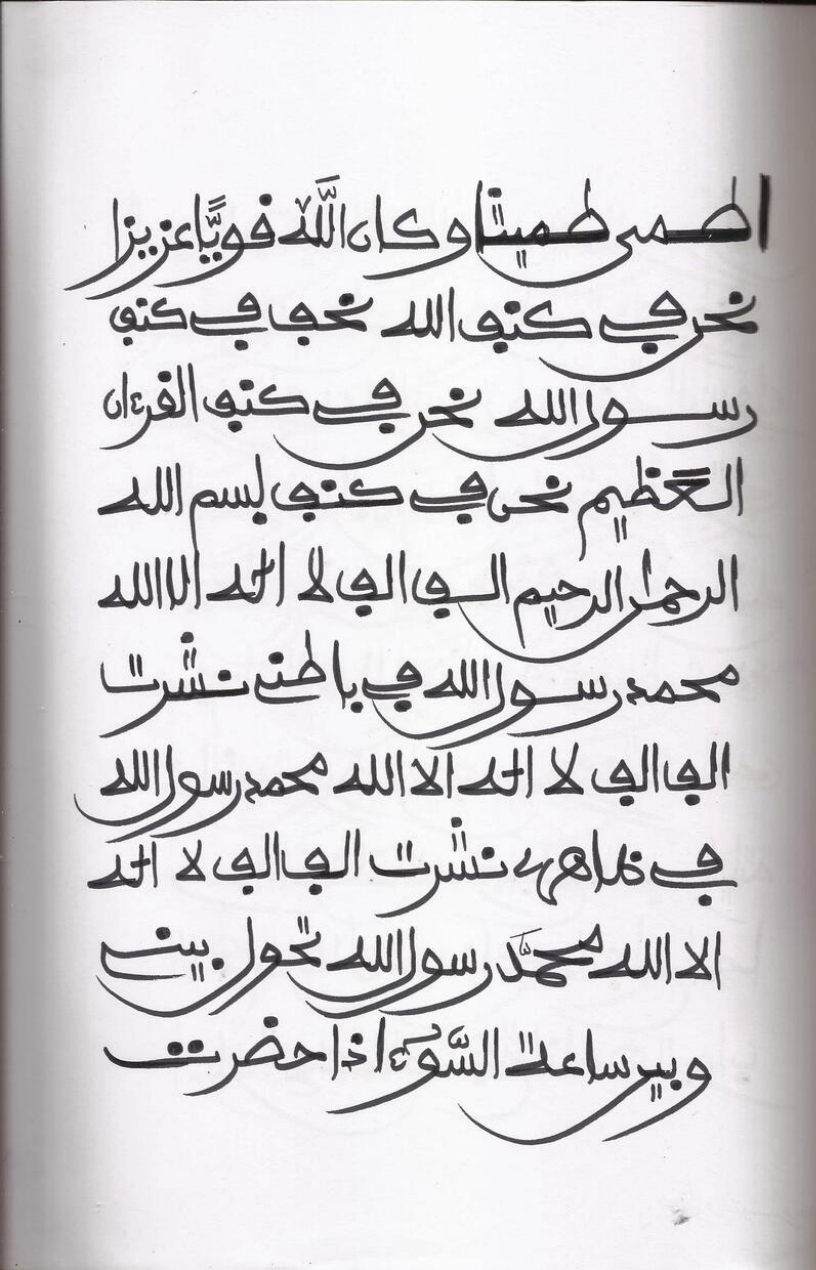 اطمى طميثا وكان اللَّه قويًّا عزيزا
نحن في كنف الله نحن في كنف
رسول الله نحن في كنف القرءان
العظيم نحن في كنف بسم الله
الرحمن الرحيم الف الف لا اله الا الله
محمد رسول الله في باطني نشرت
الف الف لا اله الا الله محمد رسول الله
في ظاهري نشرت الف الف لا اله
الا الله محمَّد رسول الله تحول بيني
وبين ساعة السُّوء اذا حضرت